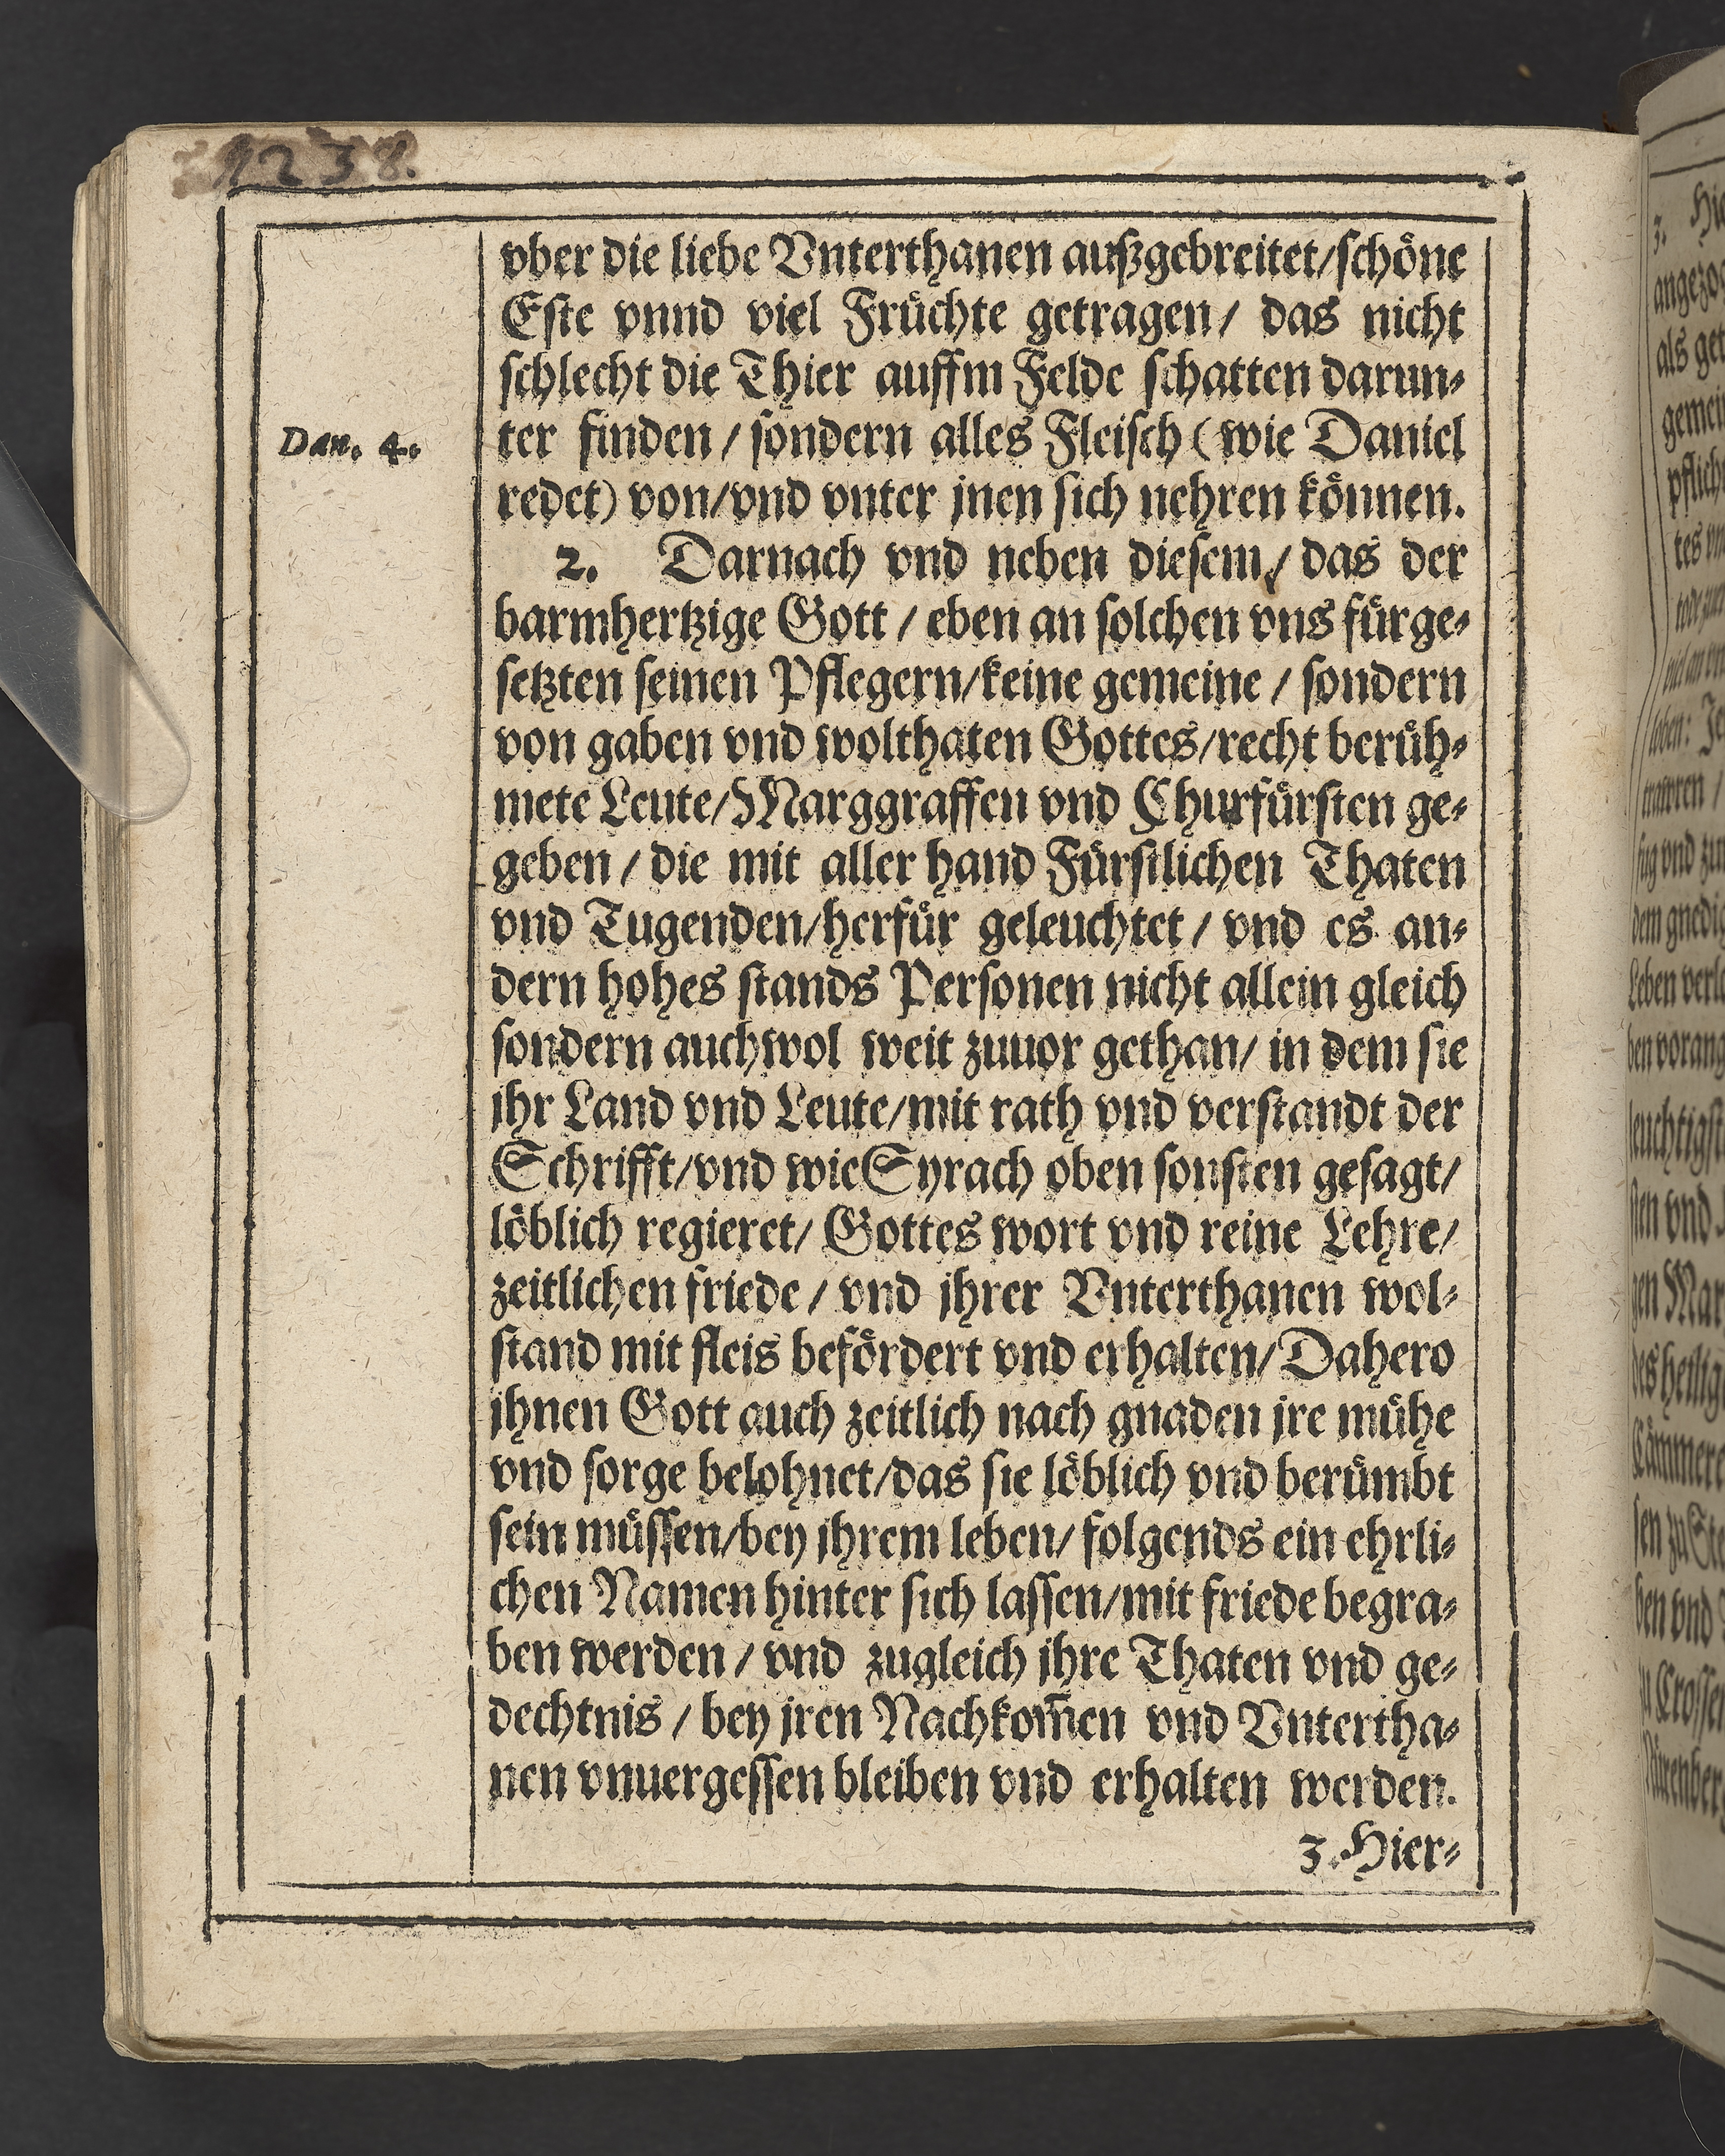 1238.
vber die liebe Vnterthanen außgebreitet/schöne
Este vnnd viel Früchte getragen/ das nicht
schlecht die Thier auffm Felde schatten darun-
Dan. 4.
ter finden / sondern alles Fleisch (wie Daniel
redet) von/vnd vnter jnen sich nehren können.
2. Darnach vnd neben diesem/ das der
barmhertzige Gott / eben an solchen vns fürge-
setzten seinen Pflegern/keine gemeine / sondern
von gaben vnd wolthaten Gottes/recht berüh-
mete Leute/Marggraffen vnd Churfürsten ge-
geben / die mit aller hand Fürstlichen Thaten
vnd Tugenden/herfür geleuchtet / vnd es an-
dern hohes stands Personen nicht allein gleich
sondern auch wol weit zuuor gethan/ in dem sie
jhr Land vnd Leute/mit rath vnd verstandt der
Schrifft/vnd wie Syrach oben sonsten gesagt/
löblich regieret/ Gottes wort vnd reine Lehre/
zeitlichen friede / vnd jhrer Vnterthanen wol-
stand mit fleis befördert vnd erhalten/ Dahero
jhnen Gott auch zeitlich nach gnaden jre mühe
vnd sorge belohnet/das sie löblich vnd berümbt
sein müssen/bey jhrem leben/ folgends ein ehrli-
chen Namen hinter sich lassen/mit friede begra-
ben werden / vnd zugleich jhre Thaten vnd ge-
dechtnis / bey jren Nachkom̃en vnd Vntertha-
nen vnuergessen bleiben vnd erhalten werden.
3. Hier-
3. Hie
als